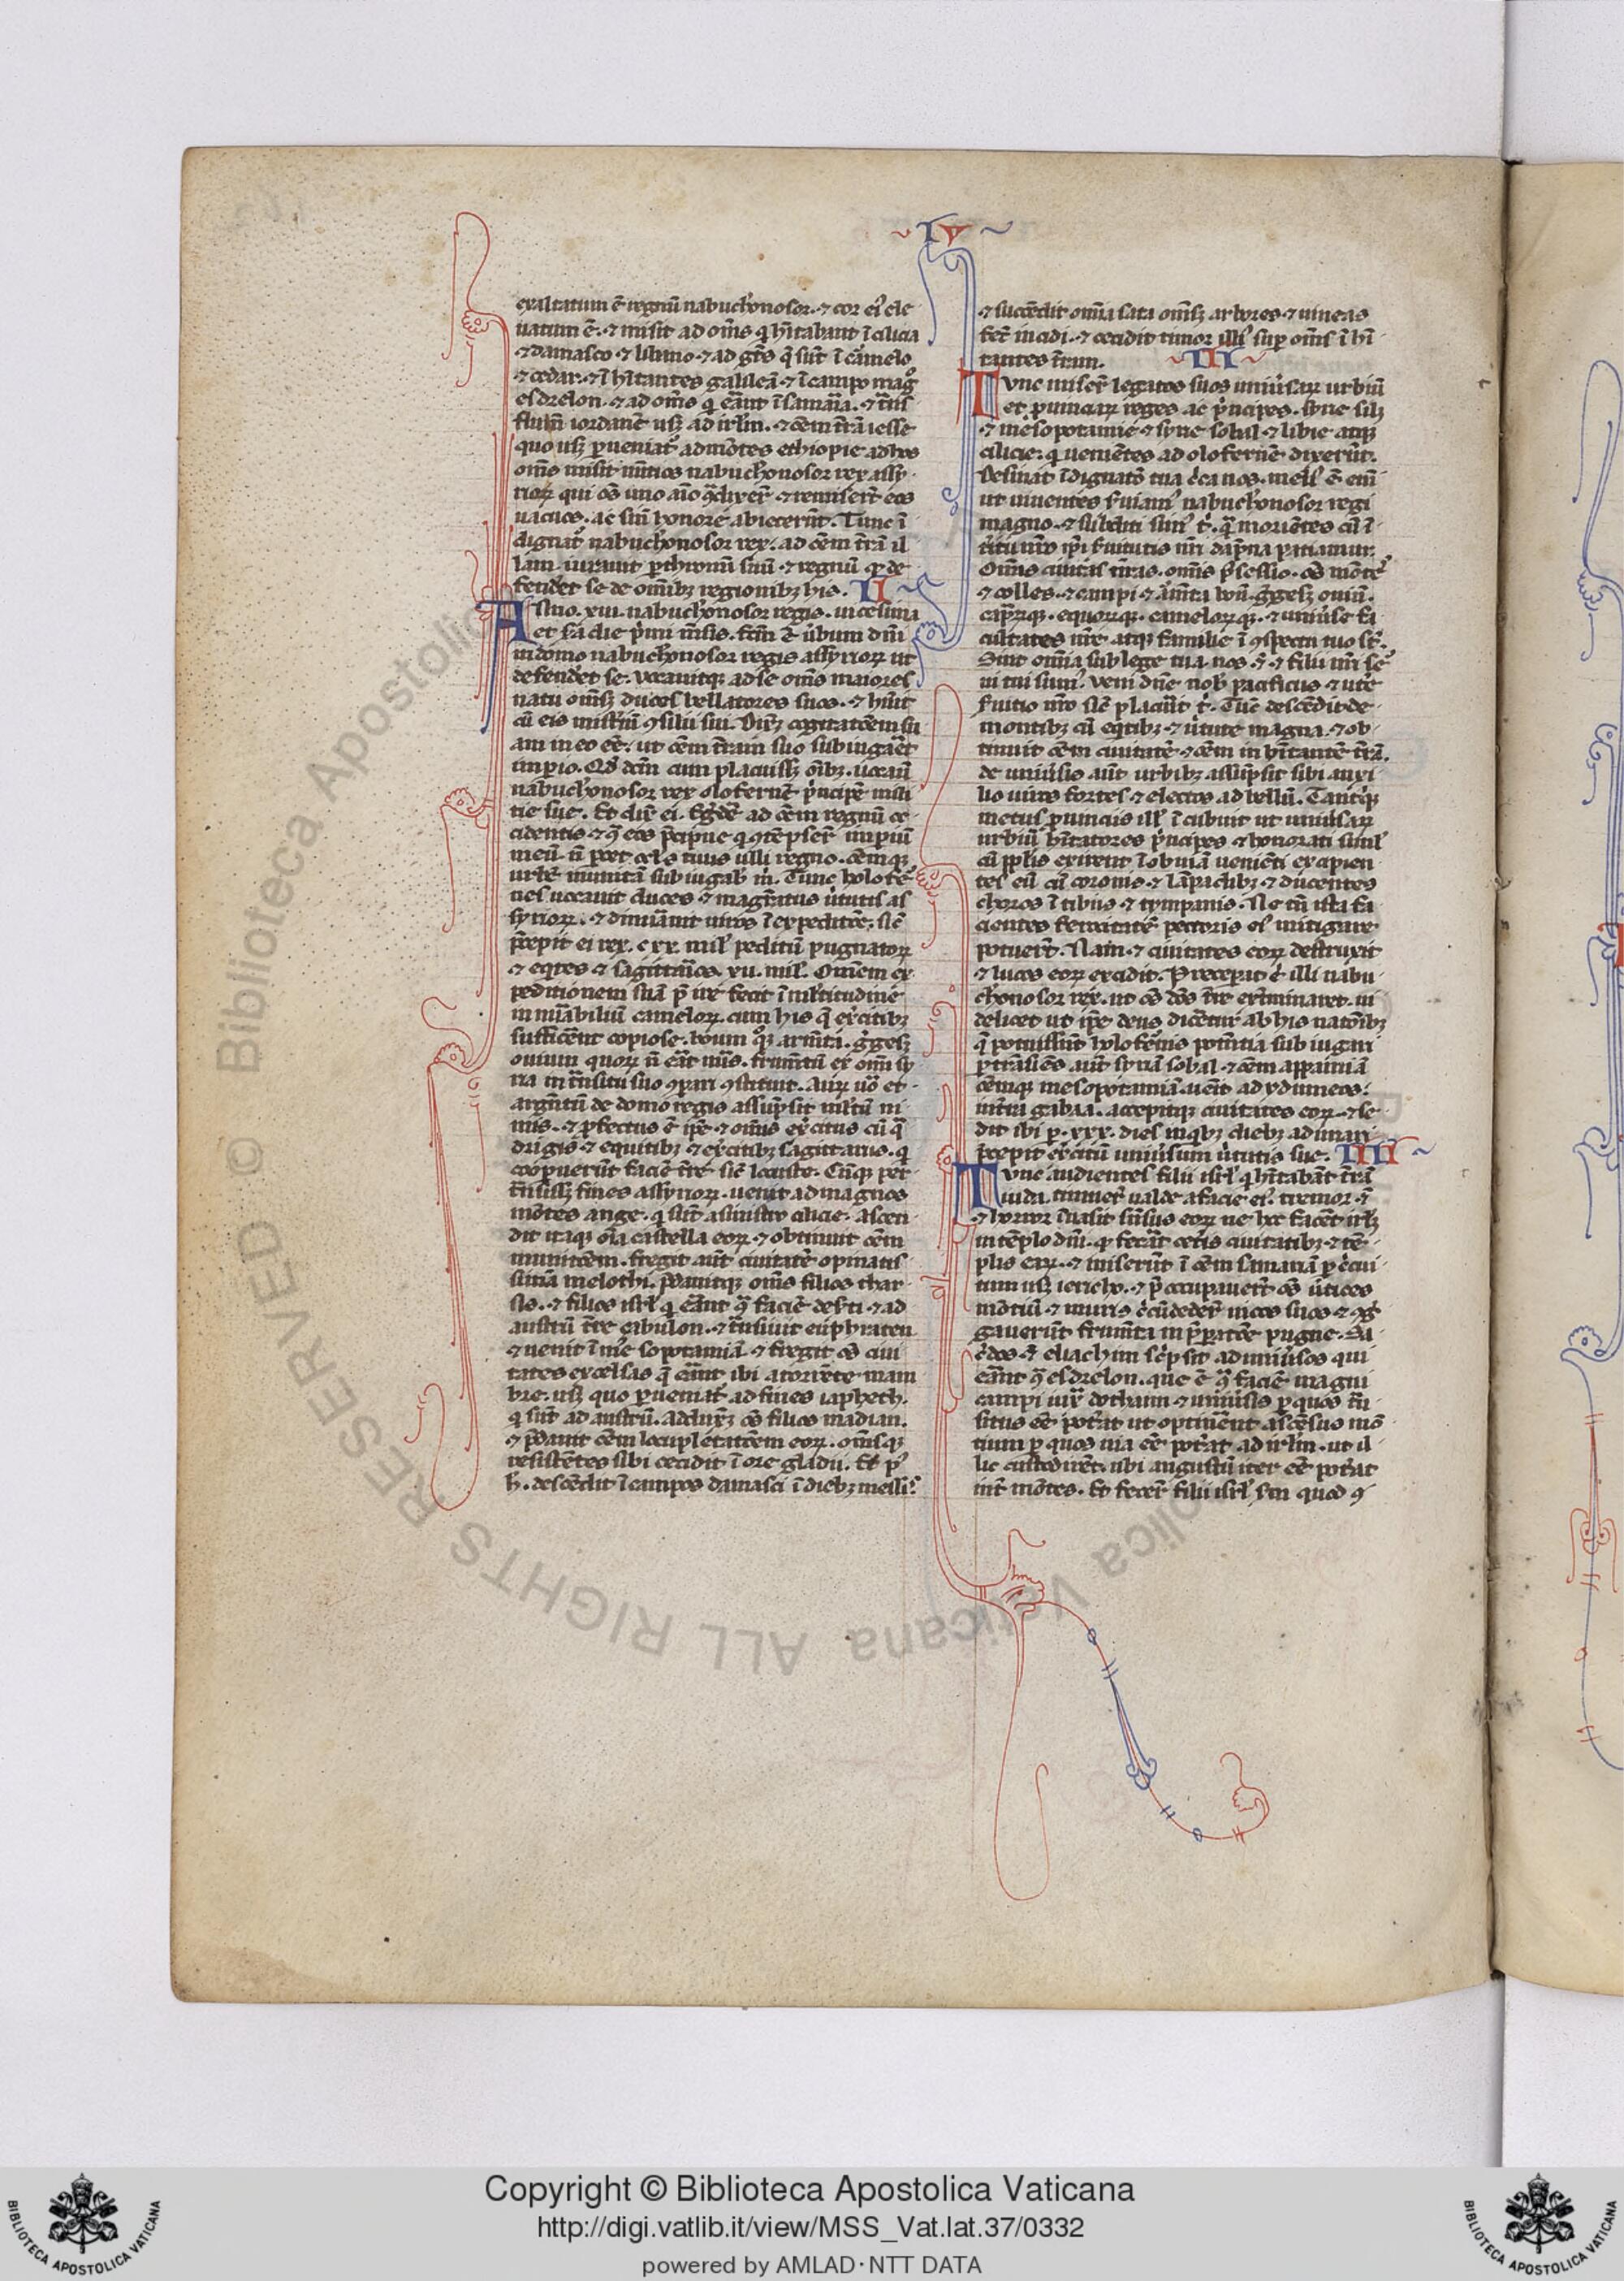 IV
exaltatum ē regnū nabuchonosor ⁊ cor ei' ele
uatum ē. ⁊ misit ad om̄s q̇ hītabant ī cilicia
⁊ damasco ⁊ libano ⁊ ad gēs q̄ sūt ī carmelo
⁊ cedar. ⁊ īhītantes galileā ⁊ ī campo mag°
esdrelon. ⁊ ad om̄s q̇ erāt ī samaria. ⁊ t̄ns
flumē iordanē usq; ad irl̄m. ⁊ oēm t̄rā iesse
quo usq; ꝑueniat' ad mōtes ethiopie ad hos
om̄s misit nūtios nabuchonosor rex assy
rioꝝ qui oēs uno aīo 9dixer̄t ⁊ remiser̄t eos
uacuos. ac sin̄ honore abiecerūt. Tunc ī
dignat' nabuchonosor rex. ad oēm t̄rā il
lam iurauit ꝑ thronū suū ⁊ regnū q̇ de
fendet se de omīb; regionib; his. II
Anno. xiii. nabuchonosor regis. uicesima
et sc̄da die p̄mi m̄sis. fc̄m ē ūbum dīī
in domo nabuchonosor regis assyrioꝝ ut
defendet se. vocauitq; ad se om̄s maiores
natu om̄sq; duces bellatores suos. ⁊ hūit
cū eis mistīū 9silii sui. Dix; cogitatōem su
am in eo eē. ut oēm t̄ram suo subiugaēt
imꝑio. Qd' dc̄m cum placuiss; oīb;. uocau
nabuchonosor rex olofernē p̄ncipē mili
tie sue. Et dix̄ ei. Egrēdē ad oēm regnū oc
cidentis ⁊ 9̄ eos p̄cipue q̇ 9tēpser̄t imꝑiū
meū. n̄ ꝑcet ocl's tuus ulli regno. oēmq;
urbē munitā subiugab' m̄. Tunc holofē
nes uocauit duces ⁊ magrātus ūtutis as
syrioꝝ. ⁊ dinūauit uiros ī expeditōe. sic̄
p̄cepit ei rex. cxx. mil' peditū pugnatoꝝ
⁊ eqtes ⁊ sagittarios. xii. mil'. Omnem ex
peditionem suā p̄ ire fecit ī multitudine
innūabiliū cameloꝝ. cum his q̄ exercitib;
sufficēnt copiose. boum q°q; armta. gregesq;
ouium quoꝝ n̄ erat nūs. frumtū ex omī sy
ria in t̄nsitu suo 9parari 9stituit. Auꝝ uō et
argētū de domo regis assūpsit mltū ni
mis. ⁊ ꝓfectus ē ip̄e ⁊ om̄is exercitus cū q̇
drigis ⁊ equitib; ⁊ exercitib; sagittariis. q̇
cooꝑuerūt faciē t̄re sic̄ locuste. Cūq; ꝑ
t̄nsiss; fines assyrioꝝ. uenit ad magnos
mōtes ange. q̇ sūt a sinistro cilicie. ascen
dit itaq; oīa castella eoꝝ. ⁊ obtinuit oēm
munitōem. fregit aut̄ ciuitatē opinatis
simā melothi. p̄dauitq; om̄s filios thar
sis. ⁊ filios isrl' q̇ erant 9̄ faciē desti ⁊ ad
austrū t̄re cibulon. ⁊ t̄nsiuit euphraten
⁊ uenit ī mesopotamiā ⁊ fregit oēs ciui
tates excelsas q̄ erant ibi a torrēte mam
bre. usq; quo ꝑueniat' ad fines iapheth.
q̇ sūt ad austrū. adduxitq; oēs filios madian.
⁊ p̄dauit oēm locupletatōem eoꝝ. om̄isq;
resistētes sibi cecidit ī ore gladii. Et p'
h̄. descēdit ī campos damasci ī dieb; messis.
⁊ succēdit omīa sata om̄sq; arbores ⁊ uineas
fec̄ incidi. ⁊ cecidit timor illi' suꝑ om̄s īhī
tantes t̄ram. III
Tunc miser̄t legatos suos uniūsaꝝ urbiū
et ꝓuinciaꝝ reges ac p̄ncipes. syrie sil';
⁊ mesopotamie ⁊ syrie sobal ⁊ libie atq;
cilicie. q̇ ueniētes ad olofernē dixerūt.
Desinat īdignatō tua c̄ca nos. meli' ē enī
ut uiuentes ſuiam' nabuchonosor regi
magno. ⁊ subditi sim' t̄. q̄ moriētes cū ī
tītū nr̄o ip̄i ſuitutis nr̄i dāpna patiamur.
Om̄is ciuitas nr̄as. om̄is p̄sessio. oēs mōte'
⁊ colles. ⁊ campi ⁊ armta boū. gregesq; ouiū.
capraꝝq;. equoꝝq;. cameloꝝq;. ⁊ uniūse fa
cultates nr̄e atq; familie ī 9spectu tuo sūt.
Sint omīa sub lege tua. nos ⁊ filii nr̄i se'
ui tui sum'. veni dn̄e nob' pacificus ⁊ ute'
ſuitio nr̄o sic̄ placuit t̄. Tūc descēdit de
montib; cū eqtib; ⁊ ūtute magna. ⁊ ob
tinuit oēm ciuitatē ⁊ oēm inhītantē t̄rā.
de uniūsis aut̄ urbib; assūpsit sibi auxi
lio uiros fortes ⁊ electos ad bellū. Tantusq;
metus ꝓuinciis ill' īcubuit ut uniūsaꝝ
urbiū hītatores p̄ncipes ⁊ honorati simul'
cū pplis exirent īobuiā uenieti excipien
tes eū cū coronis ⁊ lāpadib; ⁊ ducentes
choros ī tibiis ⁊ tympanis. Nec tn̄ ista fa
cientes ferocitatē pectoris ei' mitigare
potuer̄t. Nam ⁊ ciuitates eoꝝ destruxit
⁊ lucos eoꝝ excidit. Preceperat ē illi nabu
chonosor rex. ut oēs dōs t̄re extminaret. ui
delicet ut ip̄e deus dicēetur ab his natōib;
q̄ potuissēnt holofernis potētia subiugari
ꝑtrāsiēs aut̄ syriā sobal ⁊ oēm appamiā
oēmq; mesopotamiā. uēit ad ydumeos.
in t̄ra gabaa. accepitq; ciuitates eoꝝ. ⁊ se
dit ibi ꝑ. xxx. dies in qb; dieb; adunari
p̄cepit exercitū uniūsum ūtutis sue. IIII
Tunc audientes filii isrl' q̇ hītabāt t̄rā
iuda. timuer̄t ualde a facie ei'. tremor ⁊
⁊ horror īuasit sēsus eoꝝ ne hoc facēt irl̄;
⁊ tēplo dn̄i. q̇ fecāt cet̄is ciuitatib; ⁊ tē
plis eaꝝ. ⁊ miserūt ī oēm samariā ꝑ c̄cui
tum usq; iericho. ⁊ p̄occupauer̄t oēs ūtices
mōtiū ⁊ muris c̄cūdeder̄ uicos suos ⁊ 9g̃
gauerūt frumta in p̄ꝑatōe pugne. Sa
c̄dos ⁊ eliachim sc̄psit ad uniūsos qui
erant 9̄ esdrelon. que ē 9̄ faciē magni
campi iux̄ dothain ⁊ uniūsis ꝑ quos t̄n
situs eē pot̄at ut optinēnt ascēsus mō
tium ꝑ quos uia eē pot̄at ad irl̄m. ut il
lic custodirēt. ubi angustū iter eē pot̄at
int̄ mōtes. Et fecer̄ filii isrl' scd'm quod 9
Copyright © Biblioteca Apostolica Vaticana
http://digi.vatlib.it/view/MSS_Vat.lat.37/0332
powered by AMLAD·NTT DATA
BIBLIOTECA APOSTOLICA VATICANA
BIBLIOTECA APOSTOLICA VATICANA
© Biblioteca Apostolica Vaticana ALL RIGHTS RESERVED